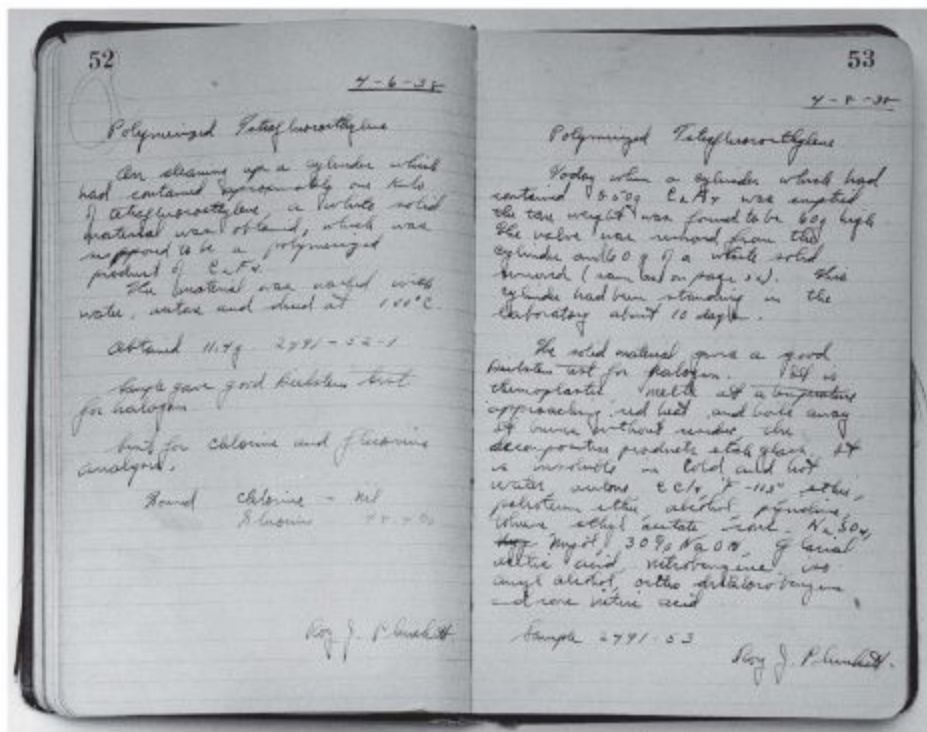 52
4-6-38
Polymerized Tetrafluoroethylene
On cleaning up a cylinder which
had contained approximately one kilo
of tetrafluoroethylene a white solid
material was obtained, which was
supposed to be a polymerized
product of C2F4.
The material was washed with
water, and dried at °C.
Obtained 11.4g. 2791-52-1
Sample gave good Beilstein test
for halogen
for chlorine and fluorine
analysis.
Found Chlorine - nil
Fluorine
Roy J. Plunkett
53
4-8-38
Polymerized Tetrafluoroethylene
Today when a cylinder which had
contained C2F4 was emptied
the tare weight was found to be 60g high
The valve was removed from the
cylinder and 60g of a white solid
removed ( on page 52). This
cylinder had been standing in the
laboratory about 10 days.
The solid material gave a good
Beilstein test for halogen. It is
thermoplastic melts at a temperature
approaching red heat and boils away
it burns without residue the
decomposition products etch glass. It
is insoluble in cold and hot
water acetone ether,
petroleum ether alcohol, pyridine,
toluene ethyl acetate conc.
30% NaOH, glacial
acetic acid, nitrobenzene iso
amyl alcohol, ortho dichlorobenzene
and conc nitric acid
Sample 2791-53
Roy J. Plunkett.